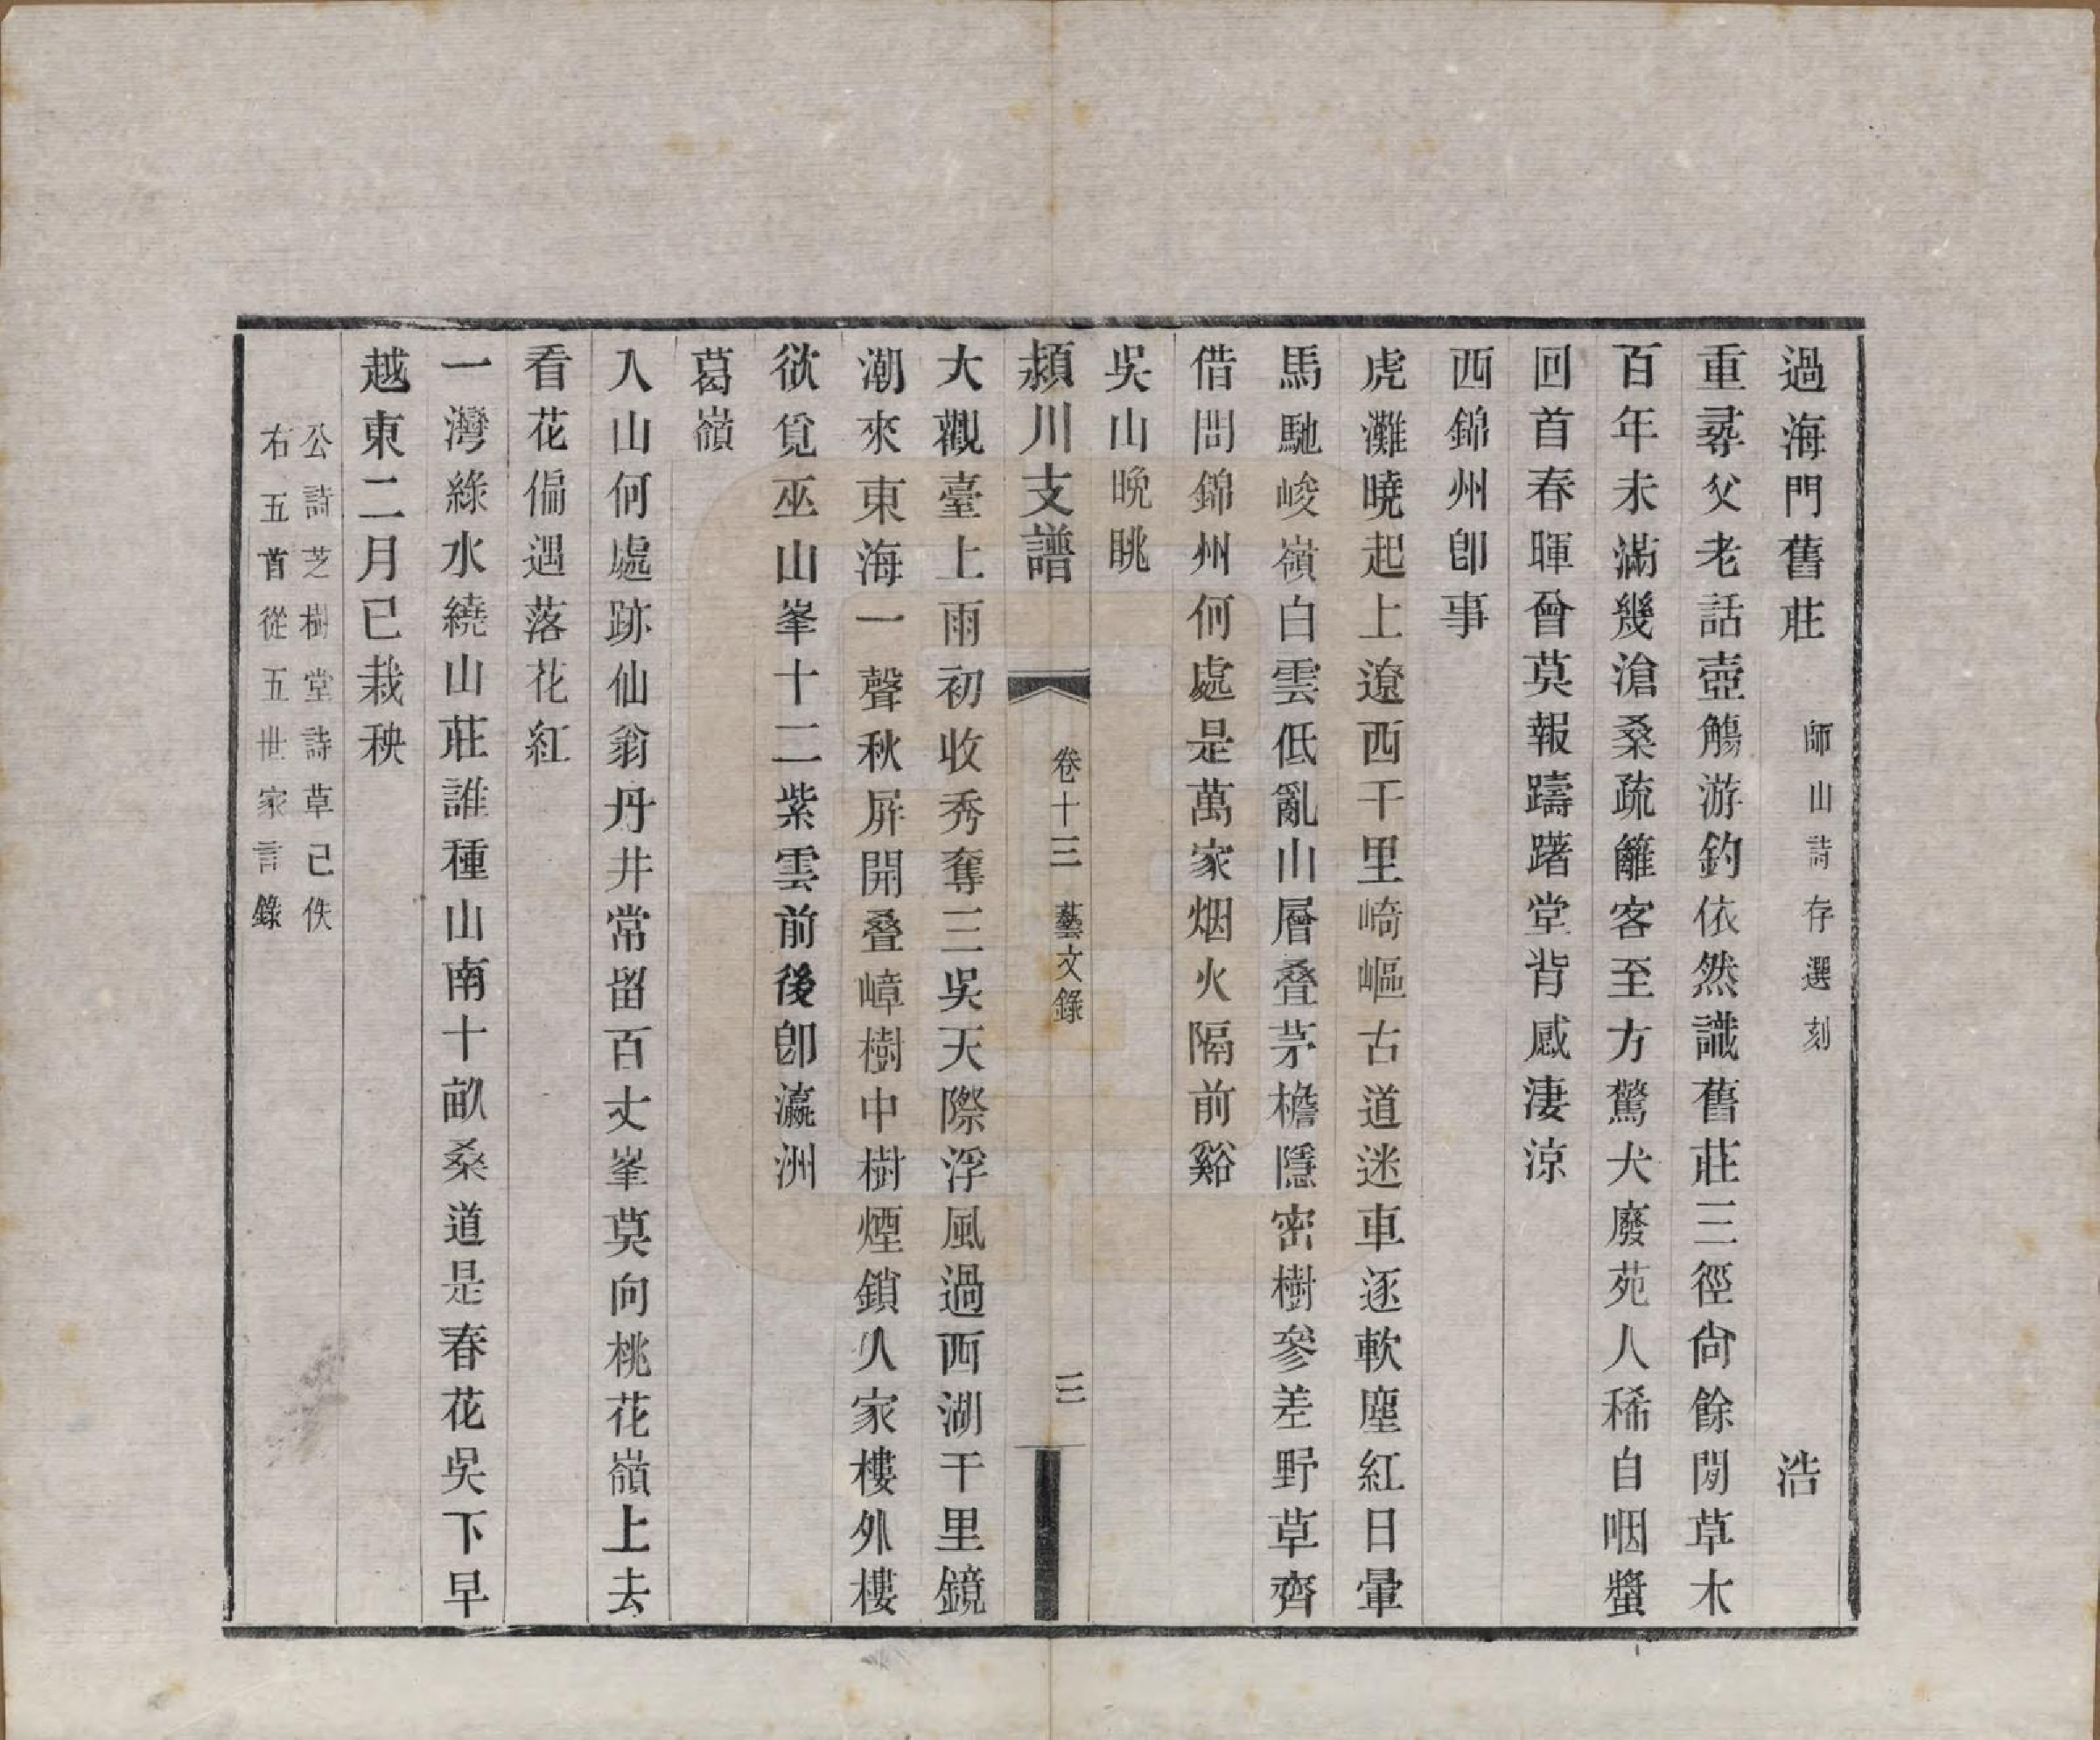 過海門舊莊　師山詩存選刻　浩
重尋父老話壺觴游釣依然識舊莊三徑尙餘閒草木
百年未滿幾滄桑疏籬客至方驚犬廢苑人稀自咽螿
回首春暉曾莫報躊躇堂背感淒涼
西錦州卽事
虎灘曉起上遼西千里崎嶇古道迷車逐軟塵紅日暈
馬馳峻嶺白雲低亂山層叠茅檐隱密樹參差野草齊
借問錦州何處是萬家烟火隔前谿
吳山晚眺
潁川支譜　卷十三　藝文錄　三
大觀臺上雨初收秀奪三吳天際浮風過西湖千里鏡
潮來東海一聲秋屏開叠嶂樹中樹煙鎖人家樓外樓
欲覓巫山峯十二紫雲前後卽瀛洲
葛嶺
入山何處跡仙翁丹井常留百丈峯莫向桃花嶺上去
看花偏遇落花紅
一灣綠水繞山莊誰種山南十畝桑道是春花吳下早
越東二月已栽秧
公詩芝樹堂詩草已佚
右五首從五世家言錄